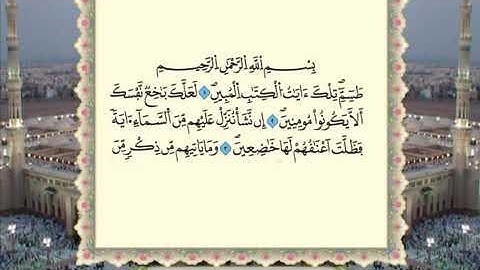 بِسْمِ اللَّهِ الرَّحْمَٰنِ الرَّحِيمِ
طَسِٓمِّٓۖ تِلْكَ ءَايَٰتُ اُ۬لْكِتَٰبِ اِ۬لْمُبِينِۖ ١ لَعَلَّكَ بَٰخِعٞ نَّفْسَكَ
أَلَّا يَكُونُواْ مُومِنِينَۖ ٢ إِن نَّشَأْ نُنَزِّلْ عَلَيْهِم مِّنَ اَ۬لسَّمَآءِ ءَايَةٗ
فَظَلَّتَ اَعْنَٰقُهُمْ لَهَا خَٰضِعِينَۖ ٣ وَمَا يَاتِيهِم مِّن ذِكْرٖ مِّنَ